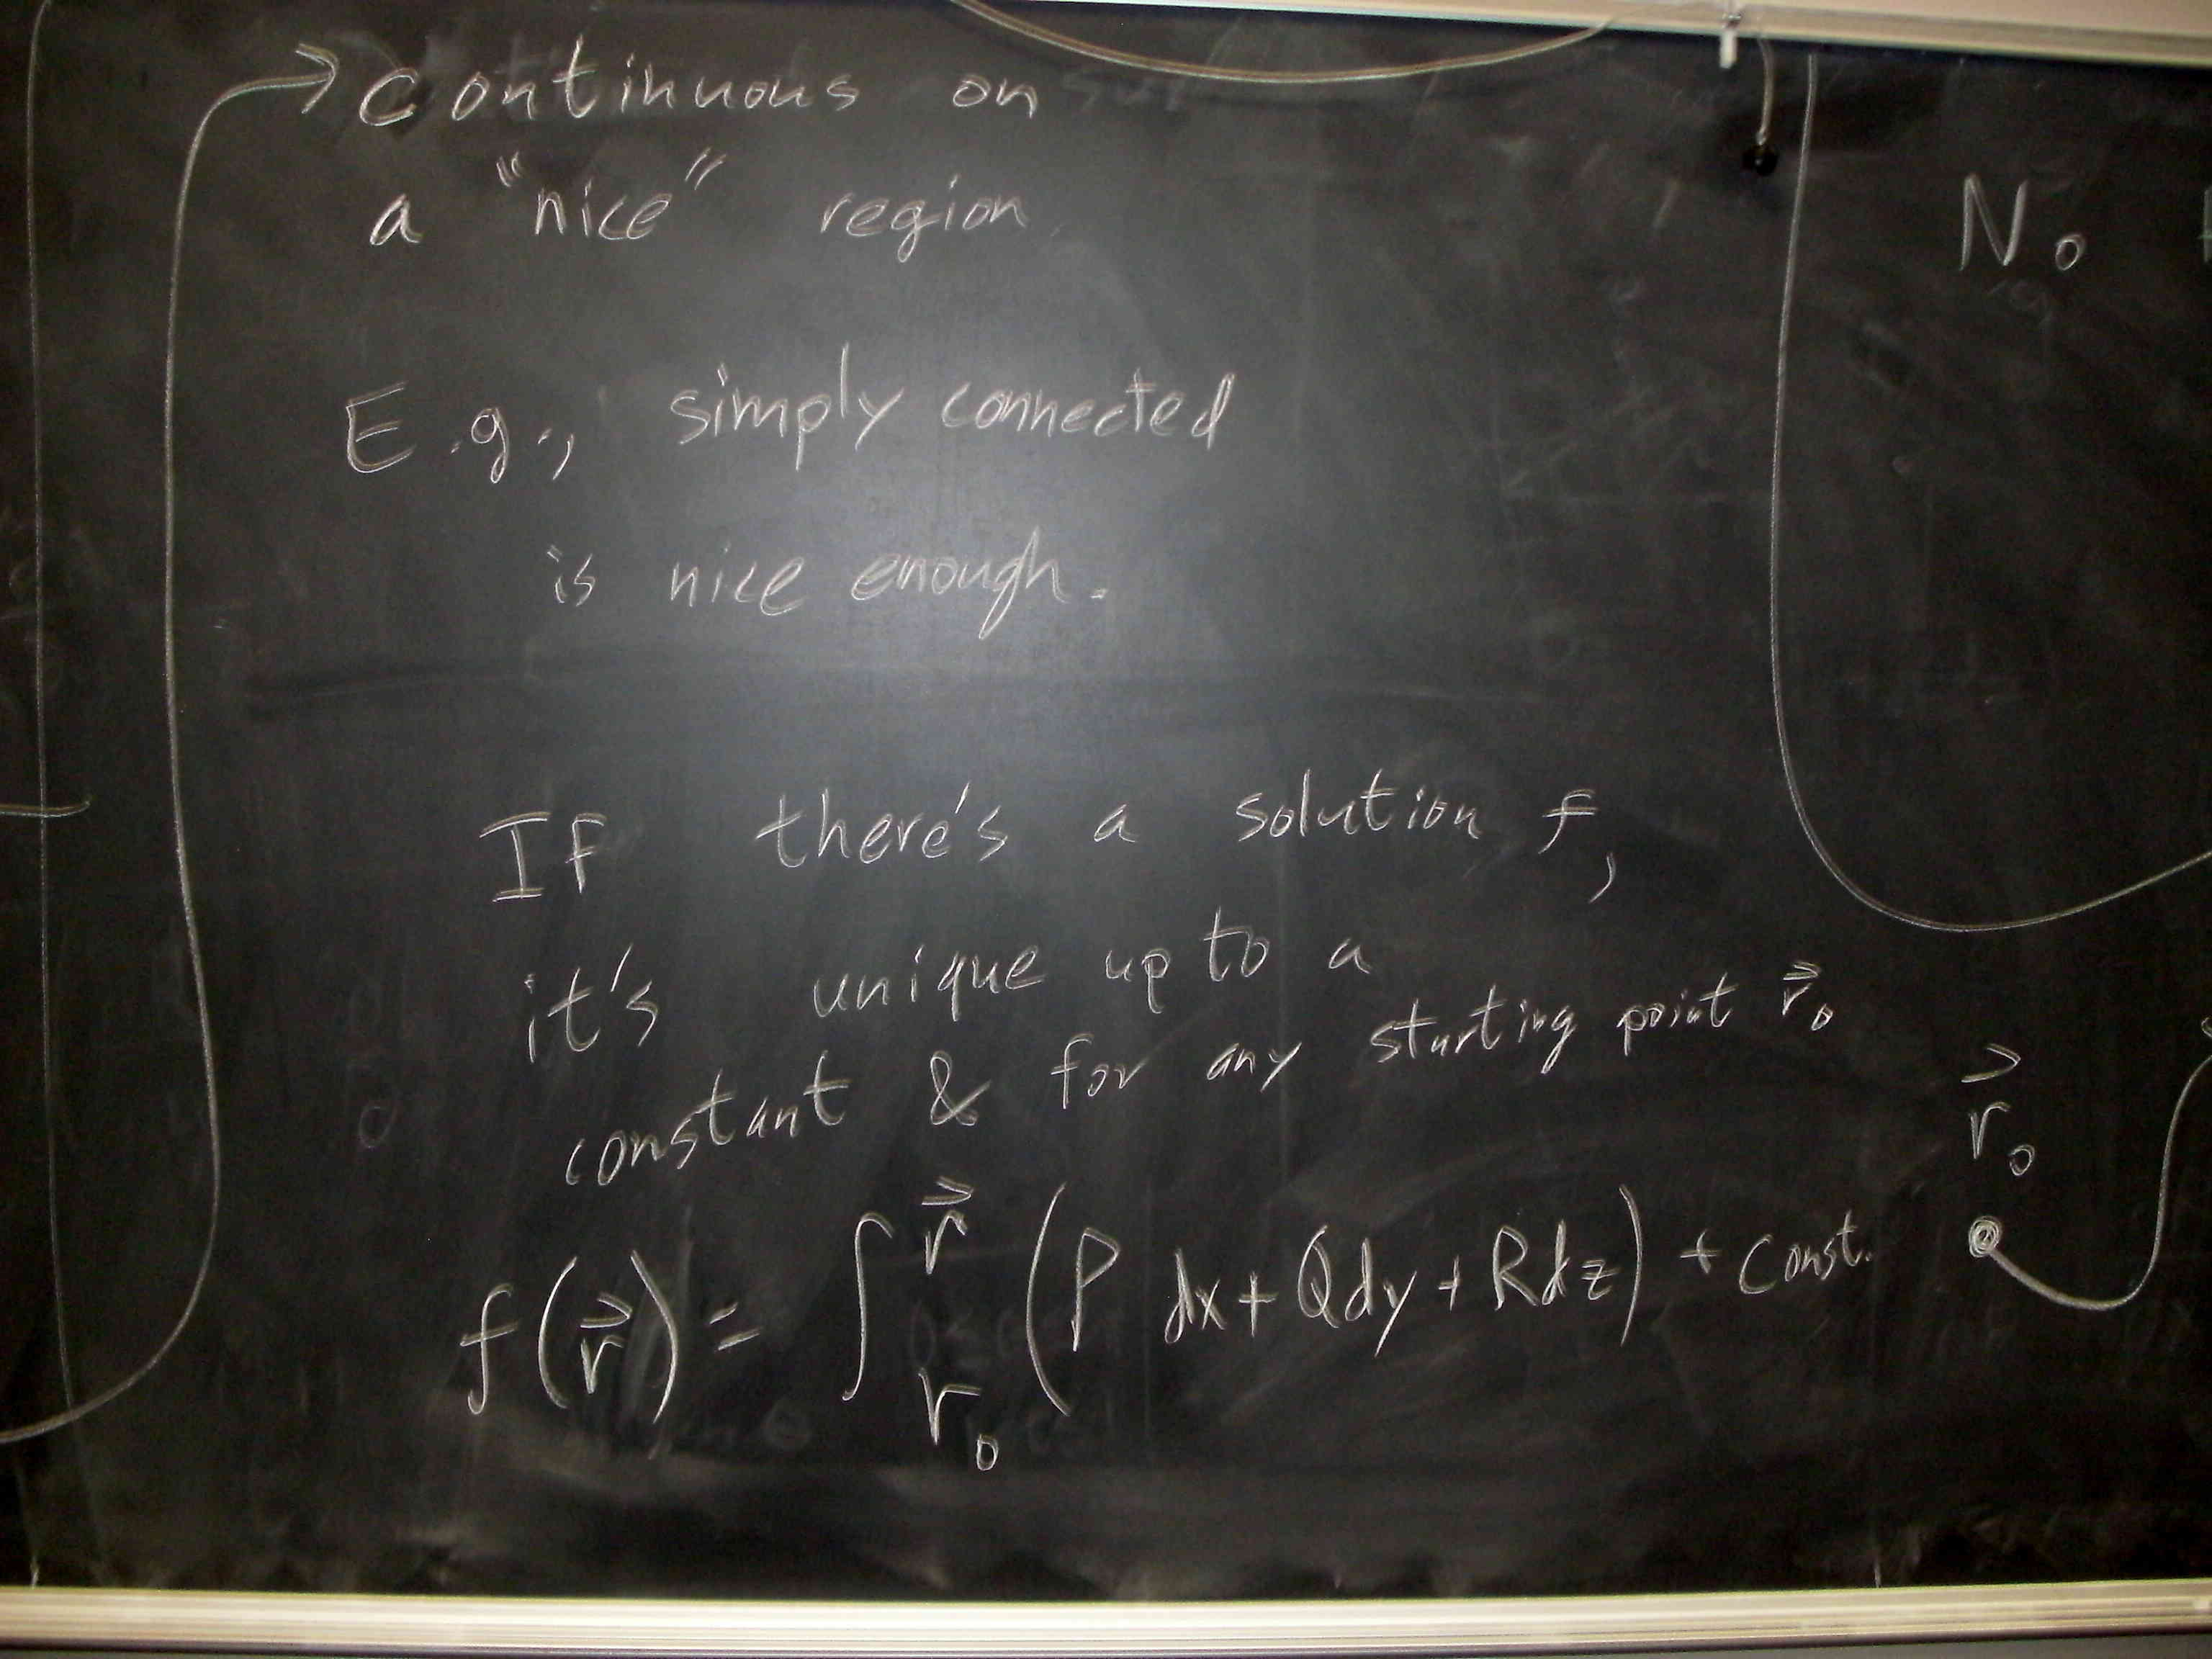 continuous on
a "nice" region
E.g., simply connected
is nice enough.
If there's a solution f,
it's unique up to a
constant & for any starting point r⃗₀
f(r⃗) = ∫_{r₀}^{r⃗} (P dx + Q dy + R dz) + const.
No
r⃗₀